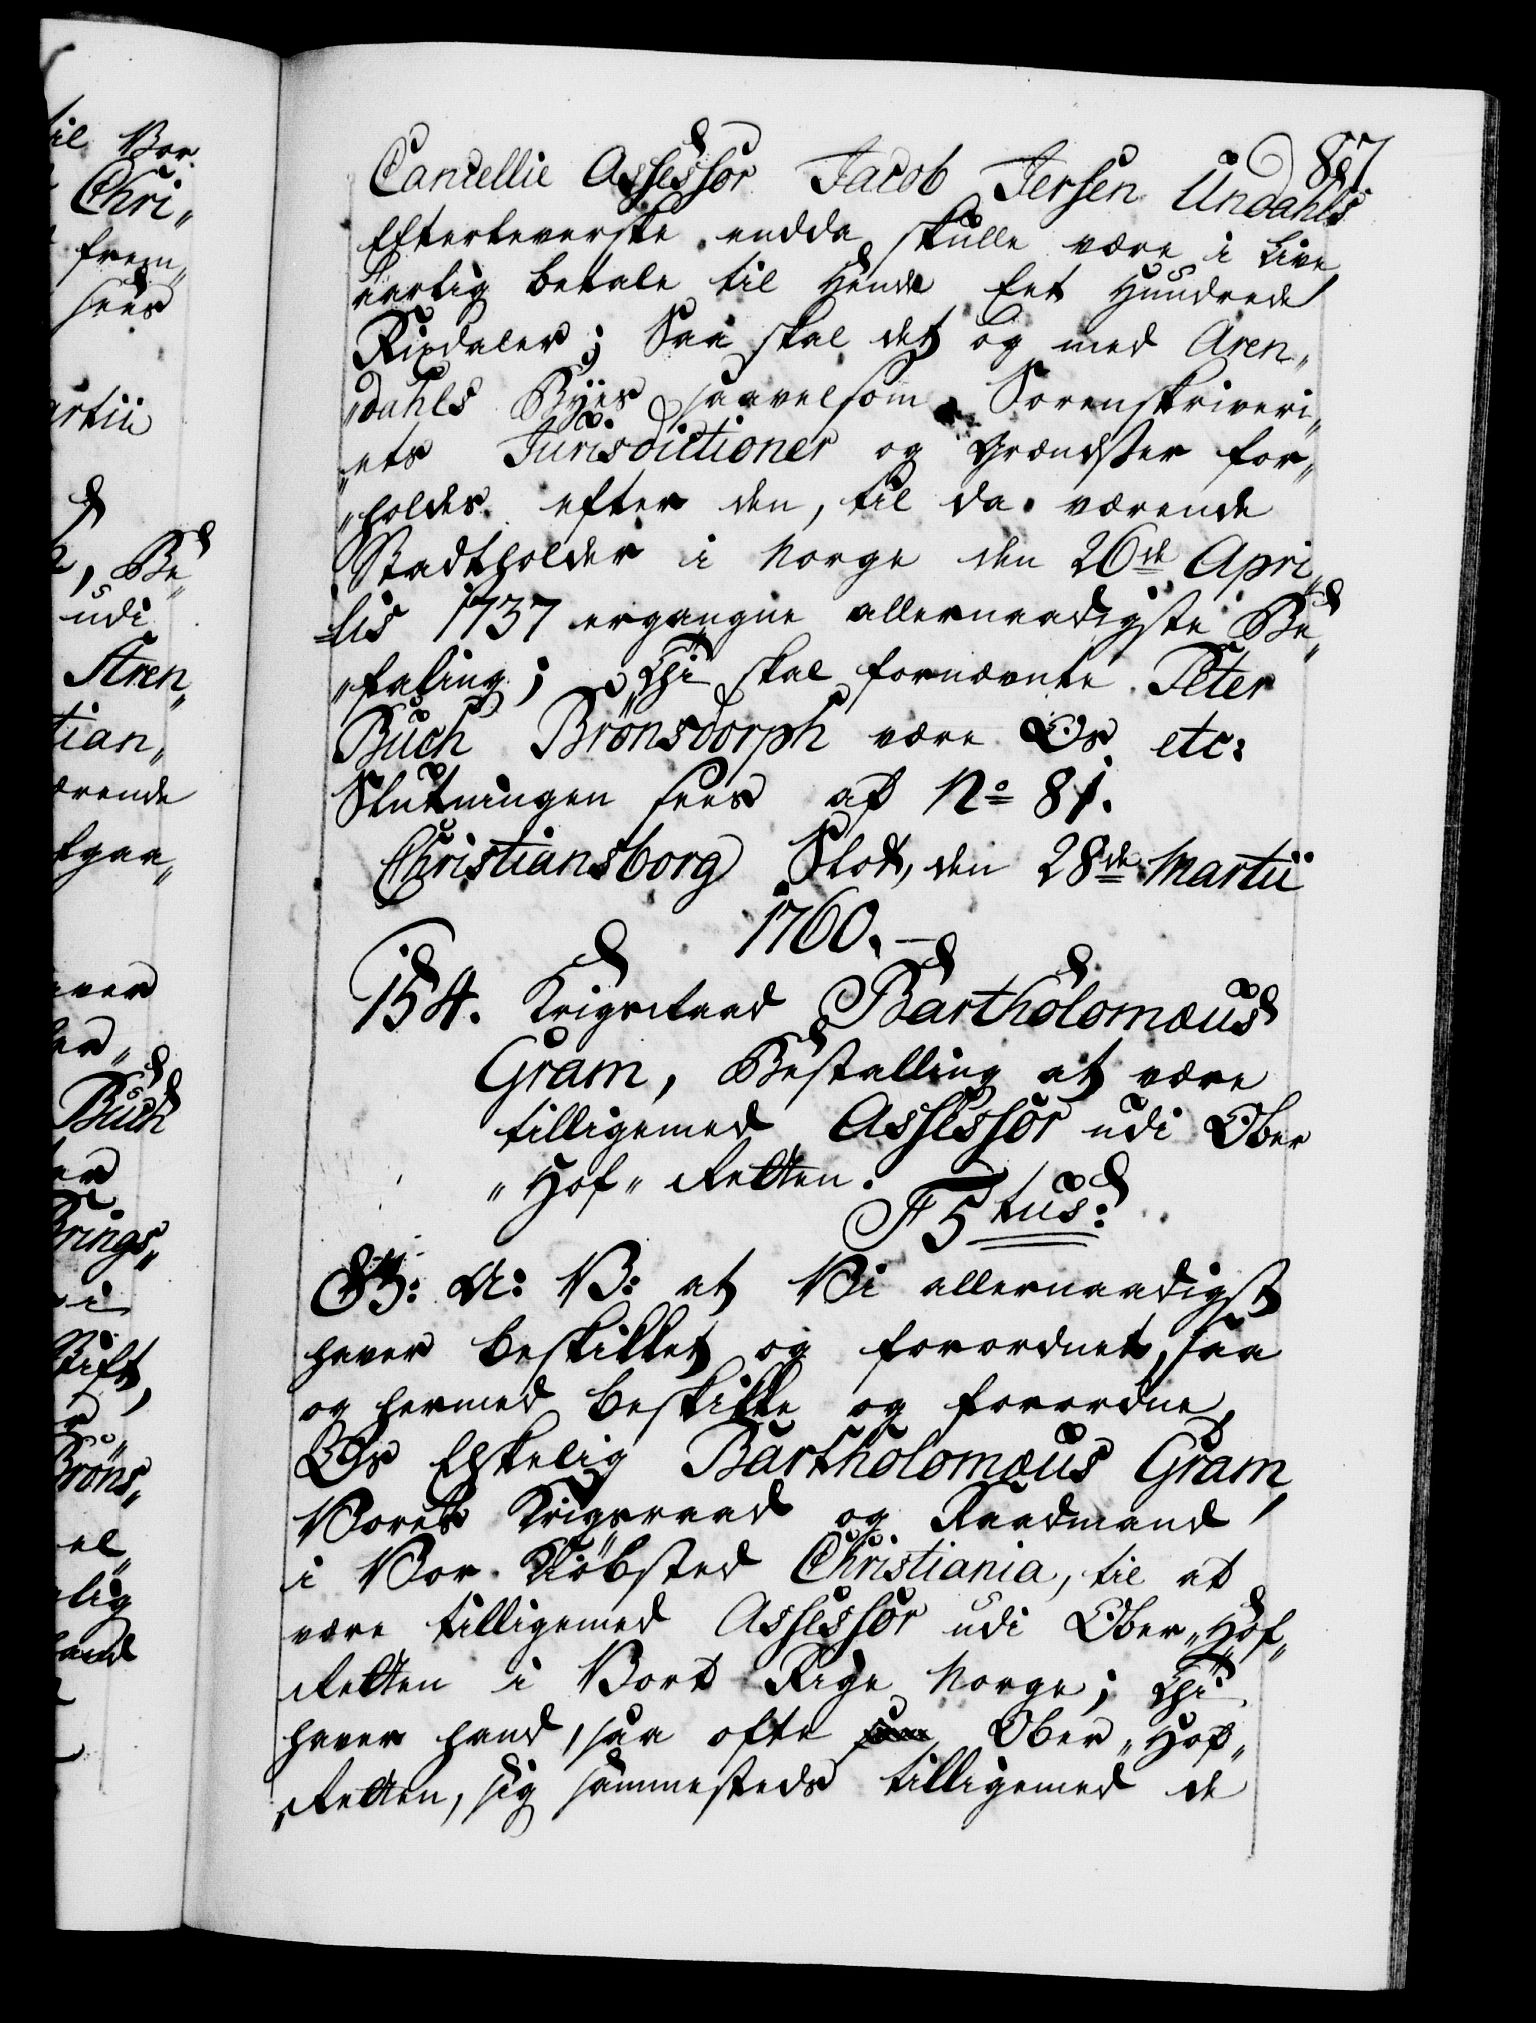 til Vor
Chri„
frem„
sees
artii
, Be„
udi
Aren„
tian„
ærende
tgaa„
aver
er„
Buch
er
Brings„
i
Stift,
Brøns„
el„
lig
hand
857
Cancellie Assessor Jacob Jersen Undahls
Efterleverske endda skulle være i Live,
aarlig betale til Hende Eet Hundrede
Rixdaler; Saa skal det og med Aren„
„dahls Byes saavelsom Sorenskriveri„
„ets Jurisdictioner og Grændser for„
„holdes efter den, til da værende
Stadtholder i Norge den 26de Apri„
„lis 1737 ergangne allernaadigste Be„
„faling; Thi skal fornævnte Peter
Buch Brönsdorph være Os etc:
Slutningen sees af No 81.
Christiansborg Slot, den 28de Martii
1760.
154. Krigsraad Bartholomæus
Gram, Bestalling at være
tilligemed Assessor udi Ober
„Hof„Retten.
F5tus:
G: A: V: at Vi allernaadigst
haver beskikket og forordnet, saa
og hermed beskikke og forordne
Os Elskelig Bartholomæus Gram,
Vores Krigsraad og Raadmand
i Vor Kiöbsted Christiania, til at
være tilligemed Assessor udi Ober„Hof„
Retten i Vort Rige Norge; Thi
haver hand, saa ofte som Ober„Hof„
„Retten, sig sammesteds tilligemed de